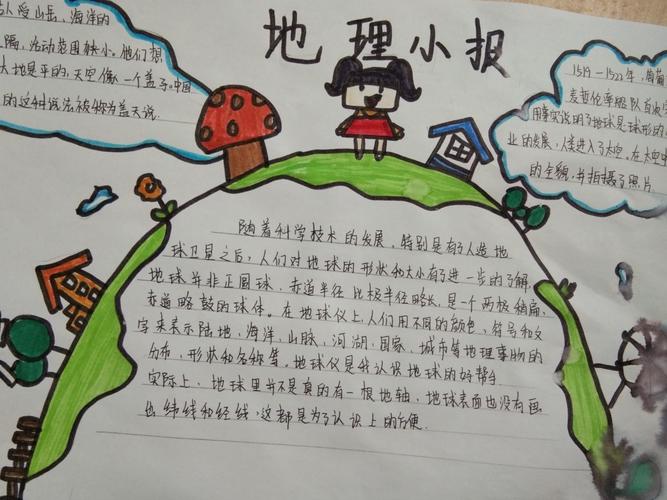 地理小报
古人受山岳、海洋的
阻隔,活动范围狭小。他们想
大地是平的,天空像一个盖子。中国
的这种说法被称为盖天说.
1519-1522年,葡萄
麦哲伦率船队首次
用事实说明了地球是球形的
业的发展,人类进入了太空。在太空
的全貌,并拍摄了照片
随着科学技术的发展,特别是有了人造地
球卫星之后,人们对地球的形状和大小有了进一步的了解,
地球并非正圆球,赤道半径比极半径略长,是一个两极稍扁,
赤道略鼓的球体。在地球仪上,人们用不同的颜色、符号和文
字来表示陆地,海洋,山脉,河湖,国家,城市等地理事物的
分布,形状和名称等。地球仪是我认识地球的好帮手
实际上,地球里并不是真的有一根地轴,地球表面也没有画
出纬线和经线,这都是为了认识上的方便.